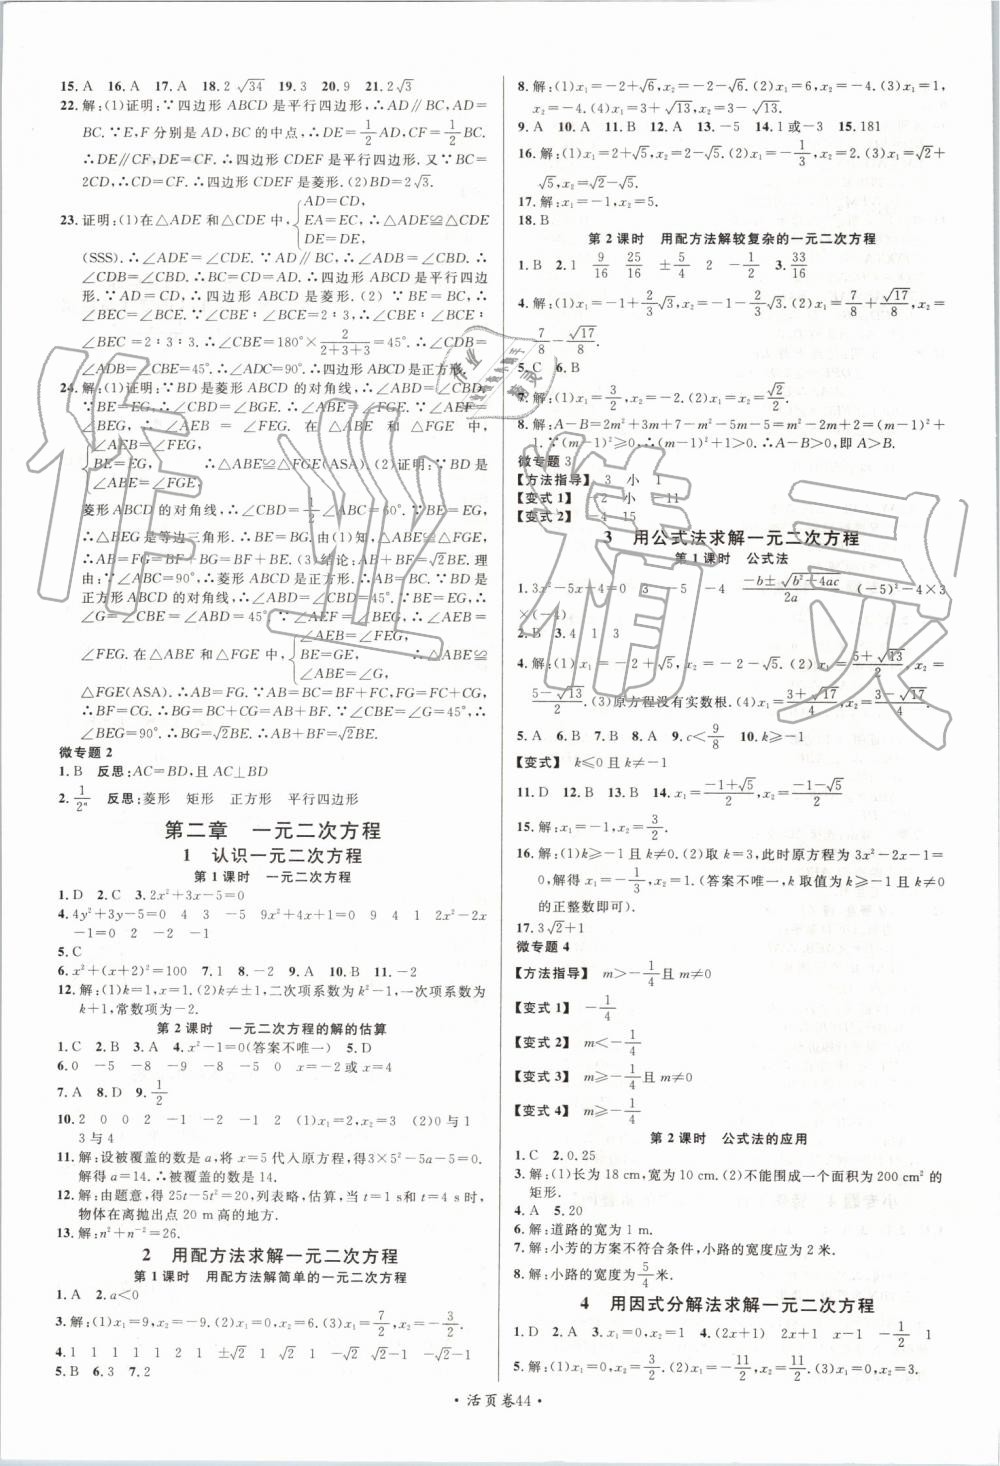 15. A 16. A 17. A 18. 2√34 19. 3 20. 9 21. 2√3
22. 解:(1)证明:∵四边形ABCD是平行四边形,∴AD∥BC,AD=
BC.∵E,F分别是AD,BC的中点,∴DE=1/2AD,CF=1/2BC.
∴DE∥CF,DE=CF.∴四边形CDEF是平行四边形.又∵BC=
2CD,∴CD=CF.∴四边形CDEF是菱形.(2)BD=2√3.
23. 证明:(1)在△ADE和△CDE中,{AD=CD, EA=EC, DE=DE,∴△ADE≌△CDE
(SSS).∴∠ADE=∠CDE.∵AD∥BC,∴∠ADB=∠CBD.∴
∠CDB=∠CBD.∴BC=CD=AD.∴四边形ABCD是平行四边
形.∵AD=CD,∴四边形ABCD是菱形.(2)∵BE=BC,∴
∠BEC=∠BCE.∵∠CBE∶∠BCE=2∶3,∴∠CBE∶∠BCE∶
∠BEC=2∶3∶3.∴∠CBE=180°×2/(2+3+3)=45°.∴∠CDB=
∠ADB=∠CBE=45°.∴∠ADC=90°.∴四边形ABCD是正方形.
24. 解:(1)证明:∵BD是菱形ABCD的对角线,∴∠ABD=∠CBD.
∵BE=EG,∴∠CBD=∠BGE.∴∠ABE=∠FGE.∵∠AEF=
∠BEG,∴∠AEB=∠FEG.在△ABE和△FGE中,
{∠AEB=∠FEG, BE=EG, ∠ABE=∠FGE,∴△ABE≌△FGE(ASA).(2)证明:∵BD是
菱形ABCD的对角线,∴∠CBD=1/2∠ABC=60°.∵BE=EG,
∴△BEG是等边三角形.∴BE=BG.由(1)知,△ABE≌△FGE,
∴AB=FG=BF+BG=BF+BE.(3)结论:AB=BF+√2BE.理由:
∵∠ABC=90°,∴菱形ABCD是正方形.∵BD是
正方形ABCD的对角线,∴∠ABD=∠CBD=45°.∵BE=EG,
∴∠G=∠CBD=∠ABD=45°.∵∠AEF=∠BEG,∴∠AEB=
∠FEG.在△ABE和△FGE中,{∠AEB=∠FEG, BE=EG, ∠ABE=∠G,∴△ABE≌
△FGE(ASA).∴AB=FG.∵AB=BC,∴FG=BC.
∴BF=CG.∴BG=BC+CG=AB+BF.∵∠CBE=∠G=45°,∴
∠BEG=90°.∴BG=√2BE.∴AB+BF=√2BE.
微专题2
1. B 反思:AC=BD,且AC⊥BD
2. 1/2ⁿ 反思:菱形 矩形 正方形 平行四边形
第二章 一元二次方程
1 认识一元二次方程
第1课时 一元二次方程
1. D 2. C 3. 2x²+3x-5=0
4. 4y²+3y-5=0 4 3 -5 9x²+4x+1=0 9 4 1 2x²-2x
-1=0 2 -2 -1
5. C
6. x²+(x+2)²=100 7. 1 8. -2 9. A 10. B 11. -2
12. 解:(1)k=1,x=1.(2)k≠±1,二次项系数为k²-1,一次项系数为
k+1,常数项为-2.
第2课时 一元二次方程的解的估算
1. C 2. B 3. A 4. x²-1=0(答案不唯一) 5. D
6. 0 -5 -8 -9 -8 -5 0 x=-2或x=4
7. A 8. D 9. 1/2
10. 2 0 0 2 -1 -2 -1 2 (1)x₁=2,x₂=3 (2)0与1
3与4
11. 解:设被覆盖的数是a,将x=5代入原方程,得3×5²-5a-5=0.
解得a=14.∴被覆盖的数是14.
12. 解:由题意,得25t-5t²=20,列表略,估算,当t=1 s和t=4 s时,
物体在离抛出点20 m高的地方.
13. 解:n²+n⁻²=26.
2 用配方法求解一元二次方程
第1课时 用配方法解简单的一元二次方程
1. A 2. a<0
3. 解:(1)x₁=9,x₂=-9.(2)x₁=0,x₂=6.(3)x₁=7/2,x₂=-3/2.
4. 1 1 1 1 1 2 1 ±√2 1 √2 -√2 √2-1 -√2-1
5. B 6. 3 7. 2
8. 解:(1)x₁=-2+√6,x₂=-2-√6.(2)x₁=6,x₂=-4.(3)x₁=1,
x₂=-4.(4)x₁=3+√13,x₂=3-√13.
9. A 10. A 11. B 12. A 13. -5 14. 1或-3 15. 181
16. 解:(1)x₁=2+√5,x₂=2-√5.(2)x₁=-1/3,x₂=2.(3)x₁=√2+
√5,x₂=√2-√5.
17. 解:x₁=-1,x₂=5.
18. B
第2课时 用配方法解较复杂的一元二次方程
1. B 2. 1 9/16 25/16 ±5/4 2 -1/2 3. 33/16
4. 解:(1)x₁=-1+2/3√3,x₂=-1-2/3√3.(2)x₁=7/8+√17/8,x₂=
7/8-√17/8.
5. C 6. B
7. 解:(1)x₁=3/2,x₂=-2.(2)方程无解.
8. 解:A-B=2m²+3m+7-m²-5m-5=m²-2m+2=(m-1)²+
1.∵(m-1)²≥0,∴(m-1)²+1>0.∴A-B>0,即A>B.
微专题3
【方法指导】 3 小 1
【变式1】 -2 小 -11
【变式2】 -4 15
3 用公式法求解一元二次方程
第1课时 公式法
1. 3x²-5x-4=0 3 -5 -4 (-b±√(b²-4ac))/2a (-5)²-4×3
×(-4)
2. B 3. 4 1 3
4. 解:(1)x₁=-2+√5,x₂=-2-√5.(2)x₁=(5+√13)/2,x₂=
(5-√13)/2.(3)原方程没有实数根.(4)x₁=(3+√17)/4,x₂=(3-√17)/4.
5. A 6. B 7. B 8. A 9. c<9/8 10. k≥-1
【变式】 k≤0且k≠-1
11. D 12. B 13. B 14. x₁=(-1+√5)/2,x₂=(-1-√5)/2
15. 解:x₁=-1,x₂=3/2.
16. 解:(1)k≥-1且k≠0.(2)取k=3,此时原方程为3x²-2x-1=
0,解得x₁=-1/3,x₂=1.(答案不唯一,k取值为k≥-1且k≠0
的正整数即可).
17. 3√2+1
微专题4
【方法指导】 m>-1/4且m≠0
【变式1】 -1/4
【变式2】 m<-1/4
【变式3】 m≥-1/4且m≠0
【变式4】 m≥-1/4
第2课时 公式法的应用
1. C 2. 0.25
3. 解:(1)长为18 cm,宽为10 cm.(2)不能围成一个面积为200 cm²的
矩形.
4. A 5. 20
6. 解:道路的宽为1 m.
7. 解:小芳的方案不符合条件,小路的宽度应为2米.
8. 解:小路的宽度为5/4米.
4 用因式分解法求解一元二次方程
1. D 2. A 3. B 4. (2x+1) 2x+1 x-1 -1/2 1
5. 解:(1)x₁=0,x₂=3/2.(2)x₁=-11/2,x₂=11/2.(3)x₁=0,x₂=3.
·活页卷44·
作业精灵